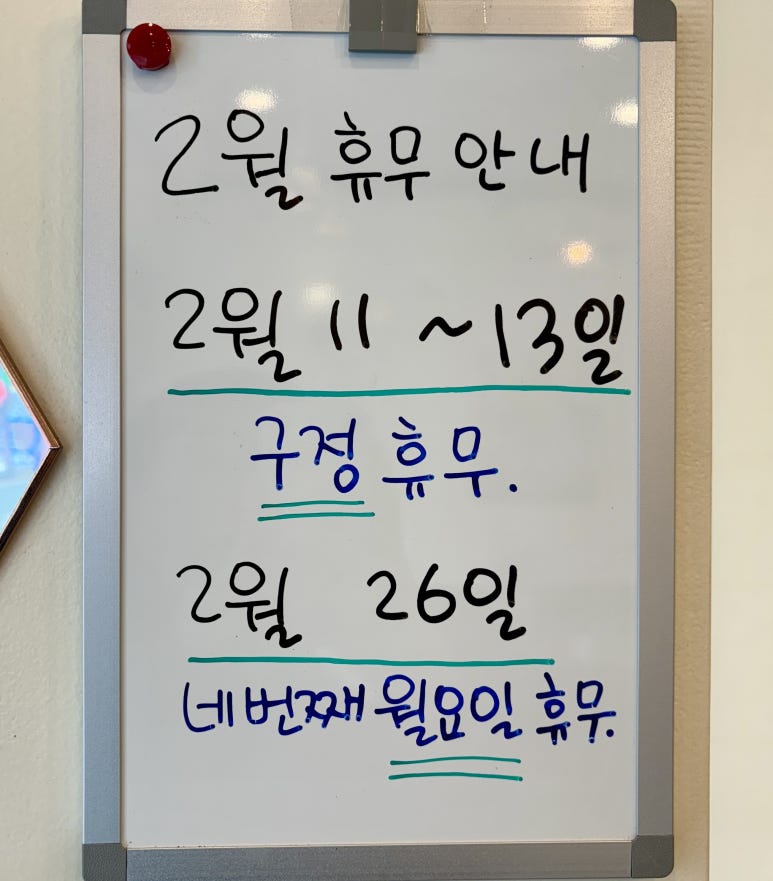 2월 휴무 안내
2월 11 ~ 13일
구정 휴무.
2월 26일
네번째 월요일 휴무.